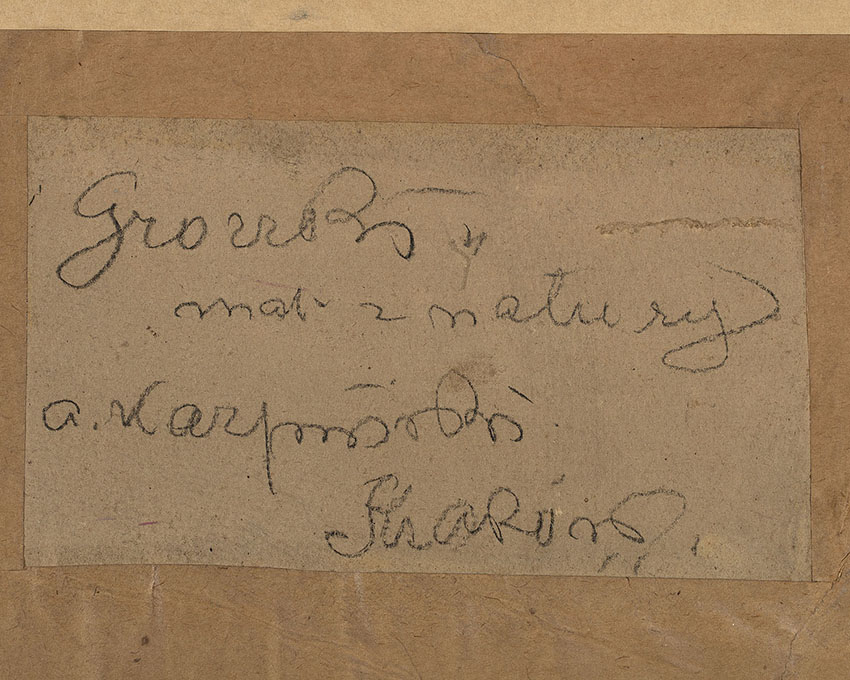 Groszki"
mal. z natury
a. Karpiński
Kraków.